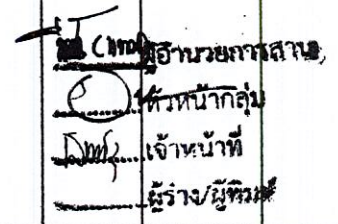 (แทน) ผู้อำนวยการส่วน
หัวหน้ากลุ่ม
เจ้าหน้าที่
ผู้ร่าง/ผู้พิมพ์